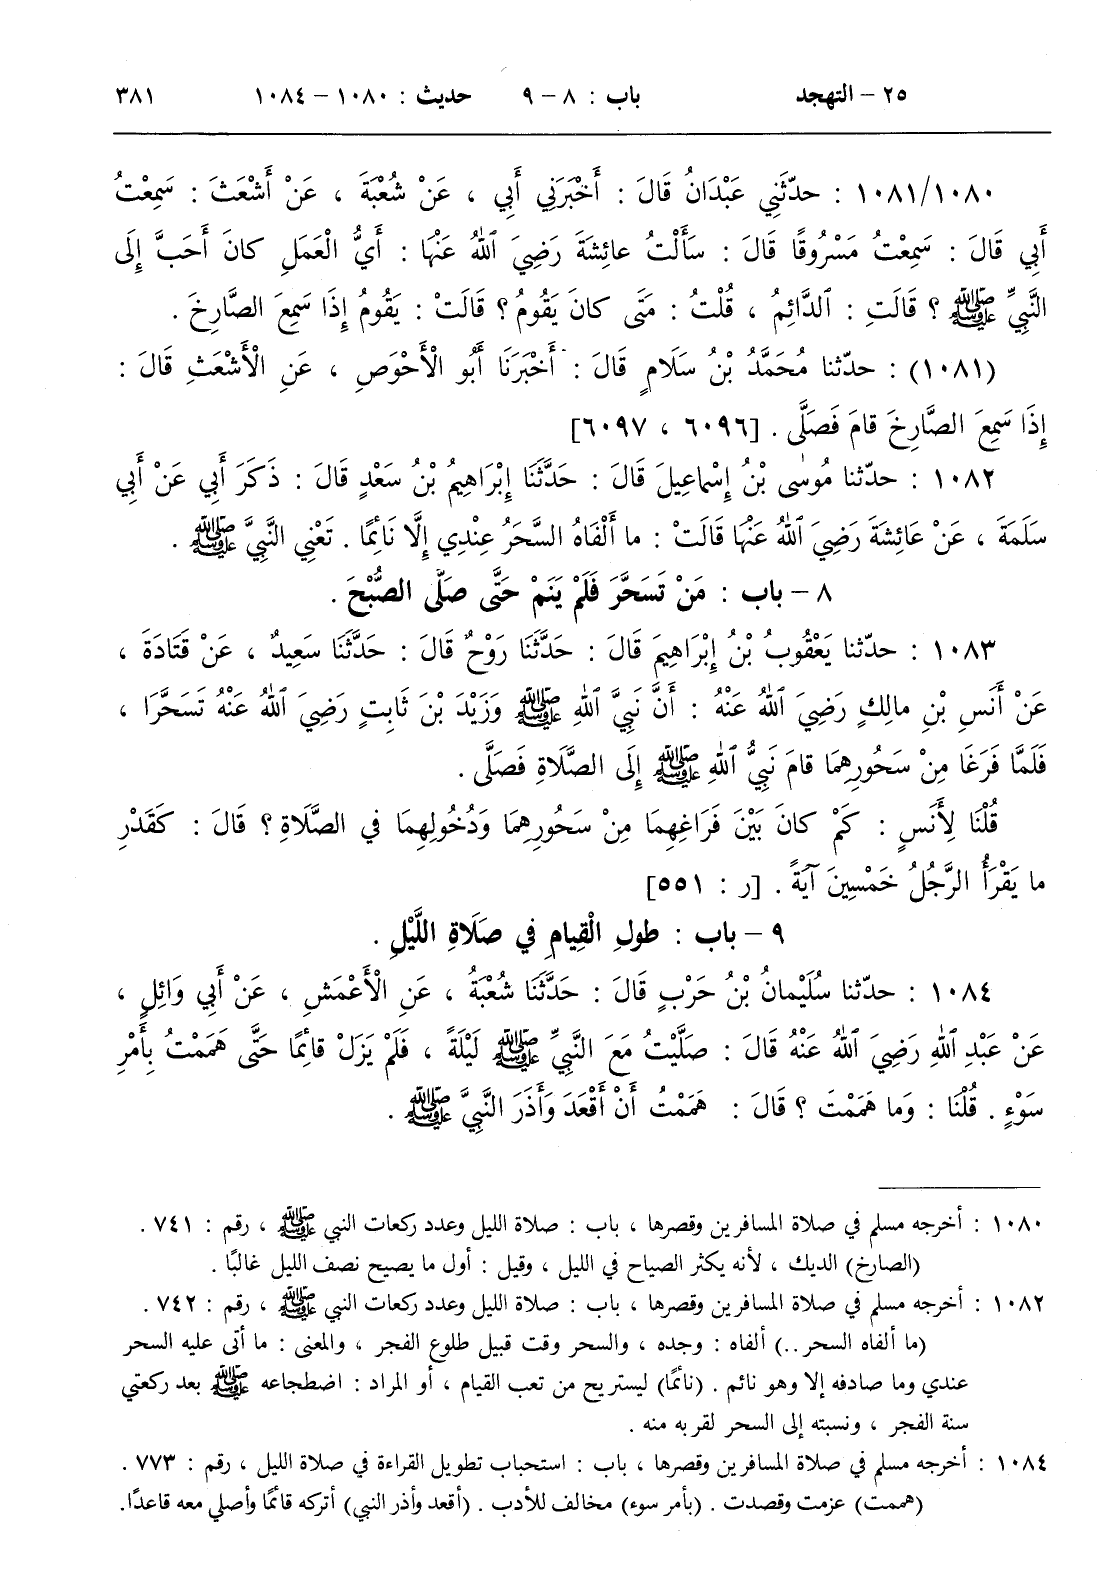 ٢٥ – التهجد باب : ٨ – ٩ حديث : ١٠٨٠ – ١٠٨٤ ٣٨١
١٠٨١/١٠٨٠ : حدّثَنِي عَبْدَانُ قَالَ : أَخْبَرَنِي أَبِي ، عَنْ شُعْبَةَ ، عَنْ أَشْعَثَ : سَمِعْتُ
أَبِي قَالَ : سَمِعْتُ مَسْرُوقًا قَالَ : سَأَلْتُ عائِشَةَ رَضِيَ ٱللهُ عَنْهَا : أَيُّ الْعَمَلِ كانَ أَحَبَّ إِلَى
النَّبِيِّ ﷺ ؟ قَالَتِ : ٱلدَّائِمُ ، قُلْتُ : مَتَى كانَ يَقُومُ ؟ قَالَتْ : يَقُومُ إِذَا سَمِعَ الصَّارِخَ .
(١٠٨١) : حدّثنا مُحَمَّدُ بْنُ سَلَامٍ قَالَ : أَخْبَرَنَا أَبُو الْأَحْوَصِ ، عَنِ الْأَشْعَثِ قَالَ :
إِذَا سَمِعَ الصَّارِخَ قامَ فَصَلَّى . [٦٠٩٦ ، ٦٠٩٧]
١٠٨٢ : حدّثنا مُوسٰى بْنُ إِسْماعِيلَ قَالَ : حَدَّثَنَا إِبْرَاهِيمُ بْنُ سَعْدٍ قَالَ : ذَكَرَ أَبِي عَنْ أَبِي
سَلَمَةَ ، عَنْ عَائِشَةَ رَضِيَ ٱللهُ عَنْهَا قَالَتْ : ما أَلْفَاهُ السَّحَرُ عِنْدِي إِلَّا نَائِمًا . تَعْنِي النَّبِيَّ ﷺ .
٨ – باب : مَنْ تَسَحَّرَ فَلَمْ يَنَمْ حَتَّى صَلَّى الصُّبْحَ .
١٠٨٣ : حدّثنا يَعْقُوبُ بْنُ إِبْرَاهِيمَ قَالَ : حَدَّثَنَا رَوْحٌ قَالَ : حَدَّثَنَا سَعِيدٌ ، عَنْ قَتَادَةَ ،
عَنْ أَنَسِ بْنِ مالِكٍ رَضِيَ ٱللهُ عَنْهُ : أَنَّ نَبِيَّ ٱللهِ ﷺ وَزَيْدَ بْنَ ثَابِتٍ رَضِيَ ٱللهُ عَنْهُ تَسَحَّرَا ،
فَلَمَّا فَرَغَا مِنْ سَحُورِهِمَا قامَ نَبِيُّ ٱللهِ ﷺ إِلَى الصَّلَاةِ فَصَلَّى .
قُلْنَا لِأَنَسٍ : كَمْ كانَ بَيْنَ فَرَاغِهِمَا مِنْ سَحُورِهِمَا وَدُخُولِهِمَا فِي الصَّلَاةِ ؟ قَالَ : كَقَدْرِ
ما يَقْرَأُ الرَّجُلُ خَمْسِينَ آيَةً . [ر : ٥٥١]
٩ – باب : طولِ الْقِيامِ فِي صَلَاةِ اللَّيْلِ .
١٠٨٤ : حدّثنا سُلَيْمانُ بْنُ حَرْبٍ قَالَ : حَدَّثَنَا شُعْبَةُ ، عَنِ الْأَعْمَشِ ، عَنْ أَبِي وَائِلٍ ،
عَنْ عَبْدِ ٱللهِ رَضِيَ ٱللهُ عَنْهُ قَالَ : صَلَّيْتُ مَعَ النَّبِيِّ ﷺ لَيْلَةً ، فَلَمْ يَزَلْ قائِمًا حَتَّى هَمَمْتُ بِأَمْرِ
سَوْءٍ . قُلْنَا : وَما هَمَمْتَ ؟ قَالَ : هَمَمْتُ أَنْ أَقْعَدَ وَأَذَرَ النَّبِيَّ ﷺ .
١٠٨٠ : أخرجه مسلم في صلاة المسافرين وقصرها ، باب : صلاة الليل وعدد ركعات النبي ﷺ ، رقم : ٧٤١ .
(الصارخ) الديك ، لأنه يكثر الصياح في الليل ، وقيل : أول ما يصيح نصف الليل غالبًا .
١٠٨٢ : أخرجه مسلم في صلاة المسافرين وقصرها ، باب : صلاة الليل وعدد ركعات النبي ﷺ ، رقم : ٧٤٢ .
(ما ألفاه السحر ..) ألفاه : وجده ، والسحر وقت قبيل طلوع الفجر ، والمعنى : ما أتى عليه السحر
عندي وما صادفه إلا وهو نائم . (نائمًا) ليستريح من تعب القيام ، أو المراد : اضطجاعه ﷺ بعد ركعتي
سنة الفجر ، ونسبته إلى السحر لقربه منه .
١٠٨٤ : أخرجه مسلم في صلاة المسافرين وقصرها ، باب : استحباب تطويل القراءة في صلاة الليل ، رقم : ٧٧٣ .
(هممت) عزمت وقصدت . (بأمر سوء) مخالف للأدب . (أقعد وأذر النبي) أتركه قائمًا وأصلي معه قاعدًا.